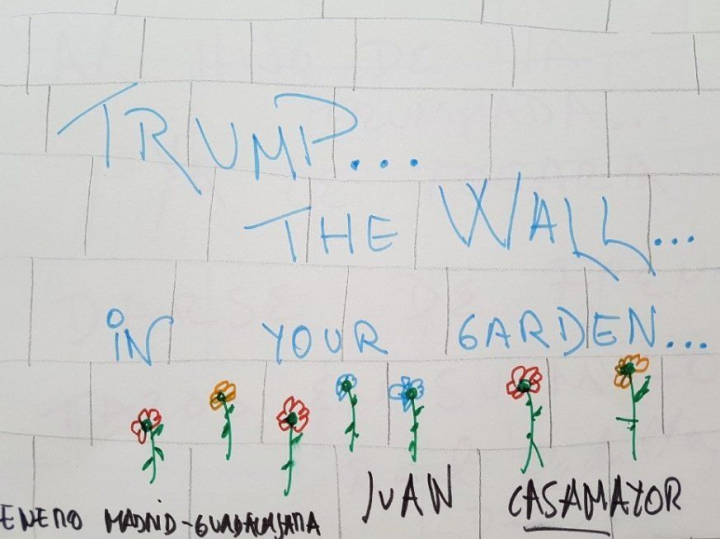 TRUMP...
THE WALL...
iN YOUR GARDEN...
ENERO MADRID-GUADALAJARA JUAN CASAMAYOR